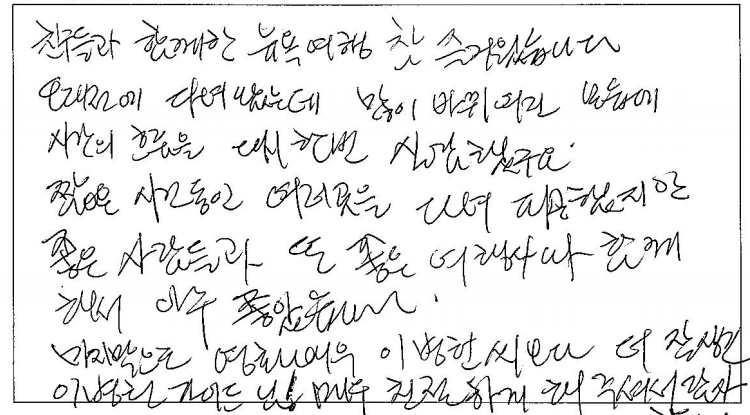 친구들과 함께한 뉴욕여행 참 즐거웠습니다
오래전에 다녀 갔는데 많이 바뀌어진 모습에
시간의 흐름을 다시 한번 실감했구요.
짧은 시간동안 여러곳을 다녀 피곤했지만
좋은 사람들과 또 좋은 여행사와 함께
해서 아주 좋았습니다.
마지막으로 영화배우 이병헌씨보다 더 잘생긴
이병헌 가이드 님! 매우 친절하게 해 주셔서 감사